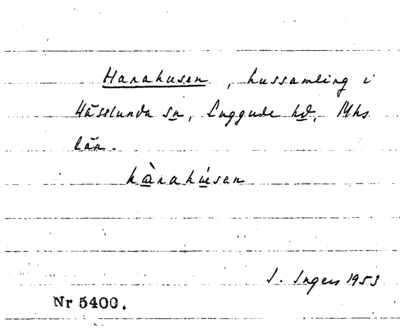 Harahusen, hussamling i
Hässlunda sn, Luggude hd, Mhs
län.
hàrahúsen
I. Ingers 1953
Nr 5400.